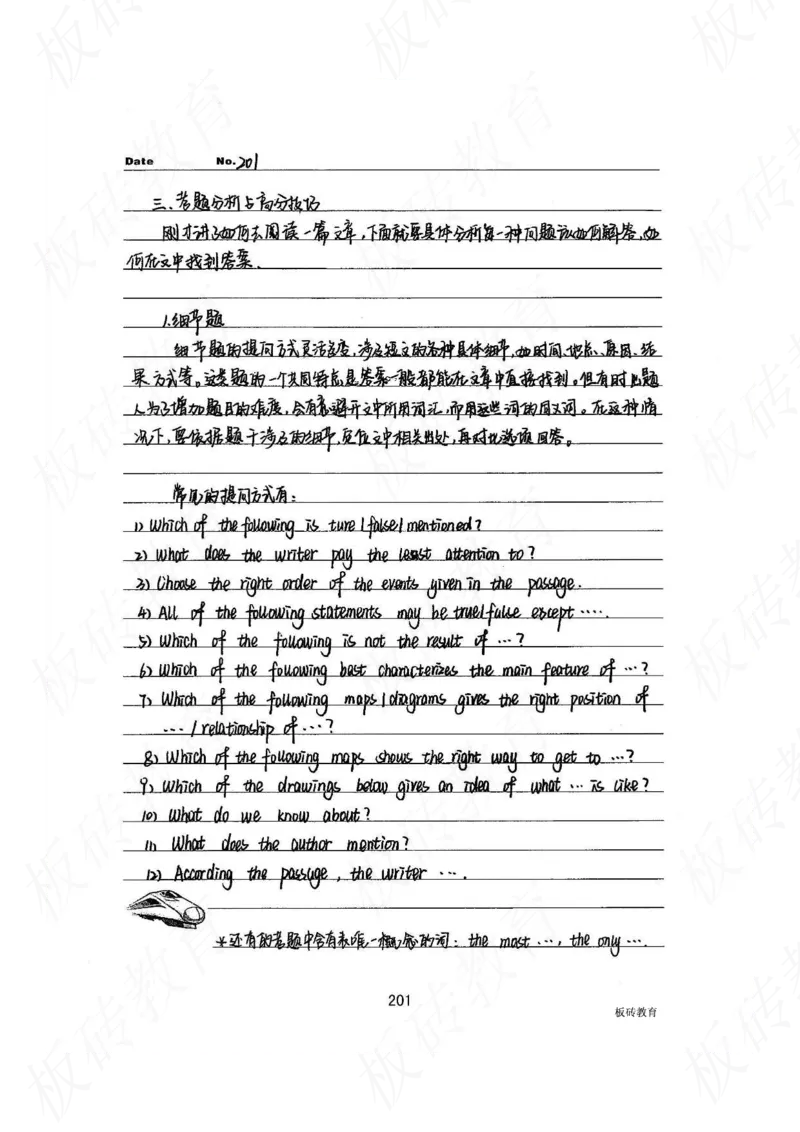 Date No. 201
三、考题分析与高分技巧
刚才讲了如何去阅读一篇文章,下面就要具体分析每一种问题该如何解答,如
何在文中找到答案.
1.细节题
细节题的提问方式灵活多变,涉及短文的各种具体细节,如时间、地点、原因、结
果、方式等。这类题的一个共同特点是答案一般都能在文章中直接找到。但有时出题
人为了增加题目的难度,会有意避开文中所用词汇,而用这些词的同义词。在这种情
况下,要依据题干涉及的细节,定位文中相关出处,再对比选项回答。
常见的提问方式有:
1) Which of the following is ture / false / mentioned?
2) What does the writer pay the least attention to?
3) Choose the right order of the events given in the passage.
4) All of the following statements may be true / false except ....
5) Which of the following is not the result of ...?
6) Which of the following best characterizes the main feature of ...?
7) Which of the following maps / diagrams gives the right position of
... / relationship of ...?
8) Which of the following maps shows the right way to get to ...?
9) Which of the drawings below gives an idea of what ... is like?
10) What do we know about?
11) What does the author mention?
12) According the passage, the writer ....
*还有的考题中含有表唯一概念的词: the most ..., the only ....
201
板砖教育